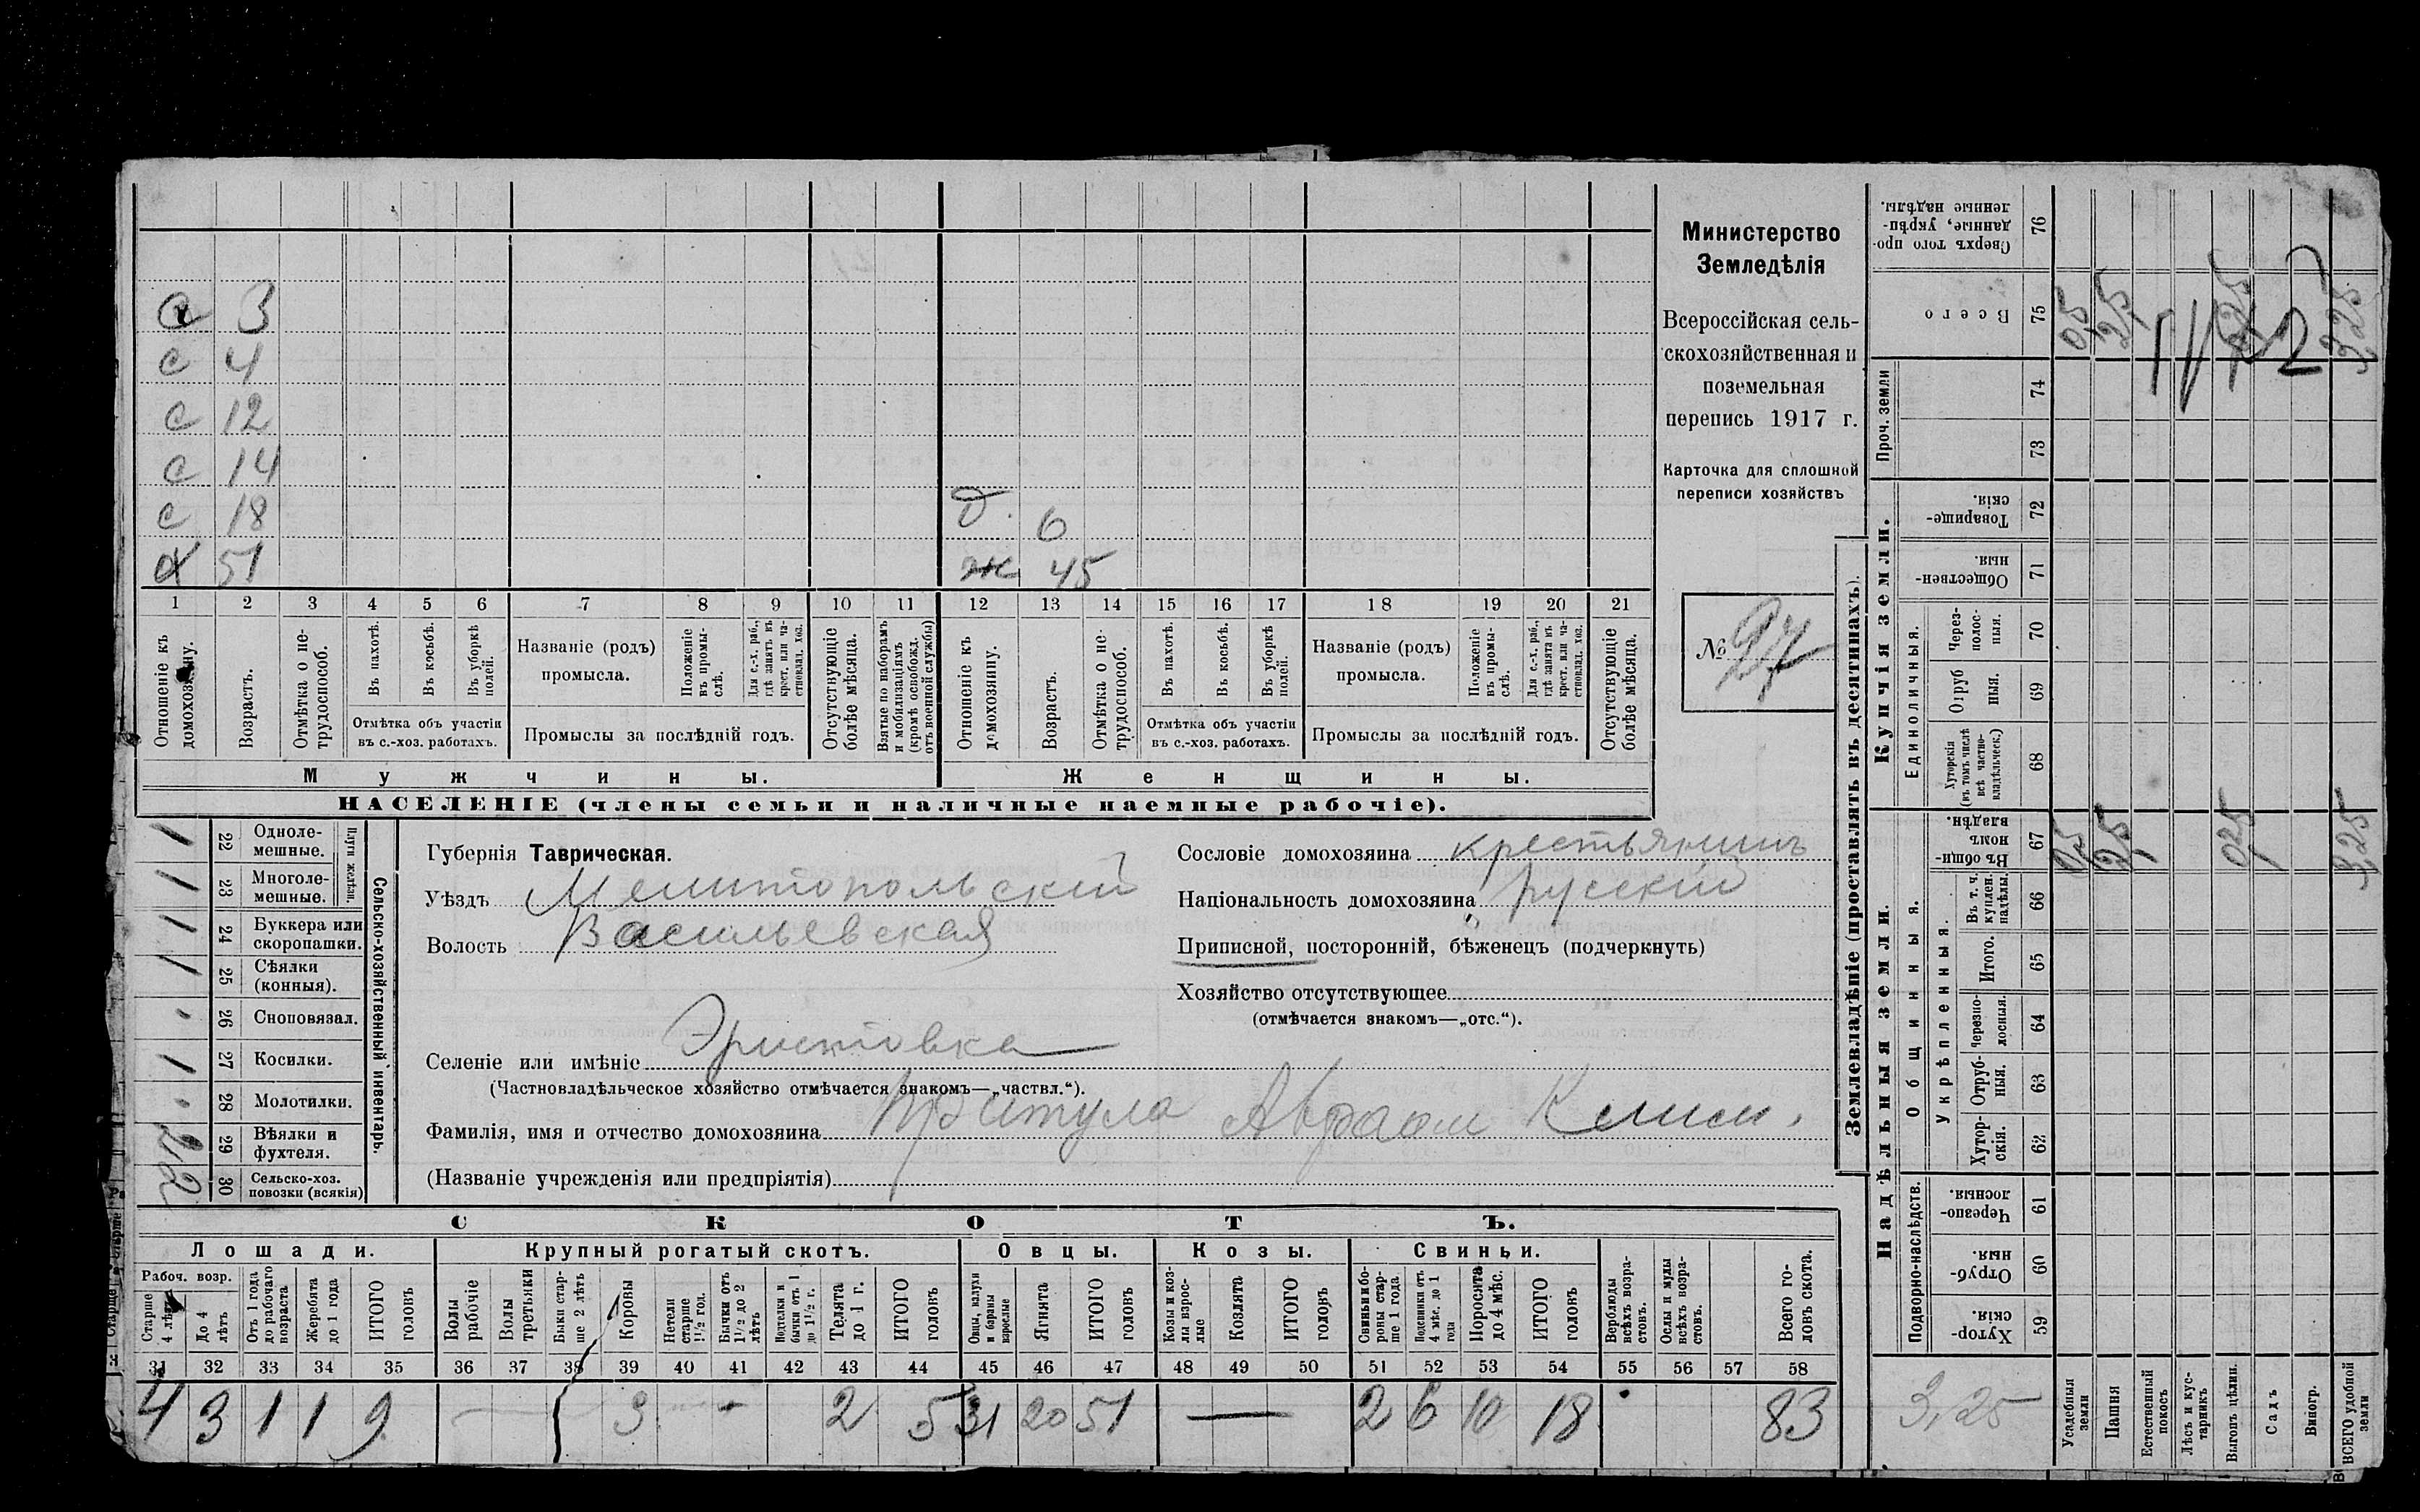 с 3
с 4
с 12
с 14
с 18
х 51
д. 6
ж 45
1 2 3 4 5 6 7 8 9 10 11 12 13 14 15 16 17 18 19 20 21
Отношеніе къ домохозяину.
Возрастъ.
Отмѣтка о не-трудоспособ.
Въ пахотѣ.
Въ косьбѣ.
Въ уборкѣ полей.
Отмѣтка объ участіи въ с.-хоз. работахъ.
Названіе (родъ) промысла.
Положеніе въ промы-слѣ.
Для с.-х. раб., гдѣ занятъ въ крест. или ча-стновлад. хоз.
Промыслы за послѣдній годъ.
Отсутствующіе болѣе мѣсяца.
Взятые по наборамъ и мобилизаціямъ (кромѣ освобожд. отъ военной службы)
Отношеніе къ домохозяину.
Возрастъ.
Отмѣтка о не-трудоспособ.
Въ пахотѣ.
Въ косьбѣ.
Въ уборкѣ полей.
Отмѣтка объ участіи въ с.-хоз. работахъ.
Названіе (родъ) промысла.
Положеніе въ промы-слѣ.
Для с.-х. раб., гдѣ занята въ крест. или ча-стновлад. хоз.
Промыслы за послѣдній годъ.
Отсутствующіе болѣе мѣсяца.
Мужчины.
Женщины.
НАСЕЛЕНІЕ (члены семьи и наличные наемные рабочіе).
Министерство
Земледѣлія
Всероссійская сель-
скохозяйственная и
поземельная
перепись 1917 г.
Карточка для сплошной
переписи хозяйствъ
№ 97
1 22 Одноле-мешные.
1 23 Многоле-мешные.
Плуги желѣзн.
1 24 Буккера или скоропашки.
1 25 Сѣялки (конныя).
26 Сноповязал.
1 27 Косилки.
28 Молотилки.
29 Вѣялки и фухтеля.
2 30 Сельско-хоз. повозки (всякія)
Сельско-хозяйственный инвентарь.
Губернія Таврическая.
Уѣздъ Мелитопольскій
Волость Васильевская
Селеніе или имѣніе Эристовка
(Частновладѣльческое хозяйство отмѣчается знакомъ—„частвл.“).
Фамилія, имя и отчество домохозяина Притула Авраам
(Названіе учрежденія или предпріятія)
Сословіе домохозяина крестьянинъ
Національность домохозяина русскій
Приписной, посторонній, бѣженецъ (подчеркнуть)
Хозяйство отсутствующее
(отмѣчается знакомъ—„отс.“).
СКОТЪ.
Лошади. Крупный рогатый скотъ. Овцы. Козы. Свиньи.
Рабоч. возр.
Старше 4 лѣтъ
До 4 лѣтъ
Отъ 1 года до рабочаго возраста
Жеребята до 1 года
ИТОГО головъ
Волы рабочіе
Волы третьяки
Быки стар-ше 2 лѣтъ
Коровы
Нетели старше 1½ год.
Бычки отъ 1½ до 2 лѣтъ
Подтелки и бычки отъ 1 до 1½ г.
Телята до 1 г.
ИТОГО головъ
Овцы, валухи и бараны взрослые
Ягнята
ИТОГО головъ
Козы и коз-лы взрос-лые
Козлята
ИТОГО головъ
Свиньи и бо-ровы стар-ше 1 года
Подсвинки отъ 4 мѣс. до 1 года
Поросята до 4 мѣс.
ИТОГО головъ
Верблюды всѣхъ возра-стовъ.
Ослы и мулы всѣхъ возра-стовъ.
Всего го-ловъ скота.
31 32 33 34 35 36 37 38 39 40 41 42 43 44 45 46 47 48 49 50 51 52 53 54 55 56 57 58
4 3 1 1 9 — 3 - 2 5 31 20 51 — 2 6 10 18 83
Землевладѣніе (проставлять въ десятинахъ).
Надѣльныя земли.
Купчія земли.
Проч. земли
Подворно-наслѣдств.
Общинныя.
Укрѣпленныя.
Единоличныя.
Сверхъ того про-данные, укрѣп-ленные надѣлы. 76
Всего 75
74
73
Товарище-скія. 72
Обществен-ныя 71
Через-полос-ныя. 70
Отруб ныя. 69
Хуторскія (въ томъ числѣ всѣ частно-владѣльческ.) 68
Въ общи-номъ владѣн. 67
Въ т. ч. куплен. надѣлы. 66
Итого. 65
Черезпо-лосныя. 64
Отруб-ныя. 63
Хутор-скія. 62
Черезпо-лосныя. 61
Отруб-ныя. 60
Хутор-скія. 59
3,25
Усадебныя земли
Пашня
Естественный покосъ
Лѣсъ и кус-тарникъ
Выгонъ цѣлин.
Садъ
Виногр.
ВСЕГО удобной земли
05 25 025 325
05 25 325